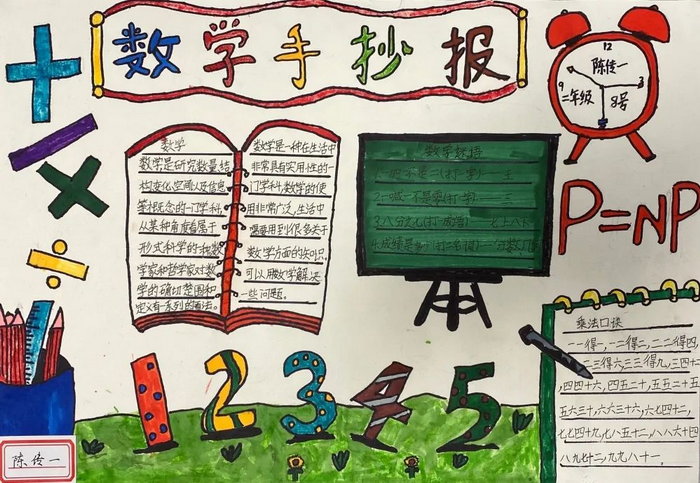 数学手抄报
12
9
3
陈传一
二年级
8号
P=NP
数学
数学是研究数量结
构变化空间以及信息
等概念的一门学科,
从某种角度看属于
形式科学的一种数
学家和哲学家对数
学的确切范围和
定义有一系列的看法。
数学是一种在生活中
非常具有实用性的一
门学科,数学的使
用非常广泛,生活中
需要用到很多关于
数学方面的知识,
可以用数学解决
一些问题。
数学谜语
乘法口诀
一一得一,一二得二,二二得四,
三得六,三三得九,三四十
四四十六,四五二十,五五二十五
五六三十,六六三十六,六七四十二,
七七四十九,七八五十二,八八六十四
八九七十二,九九八十一.
1 2 3 4 5
陈传一